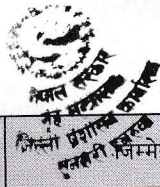 नेपाल सरकार
गृह मन्त्रालय
जिल्ला प्रशासन कार्यालय
जिम्मे